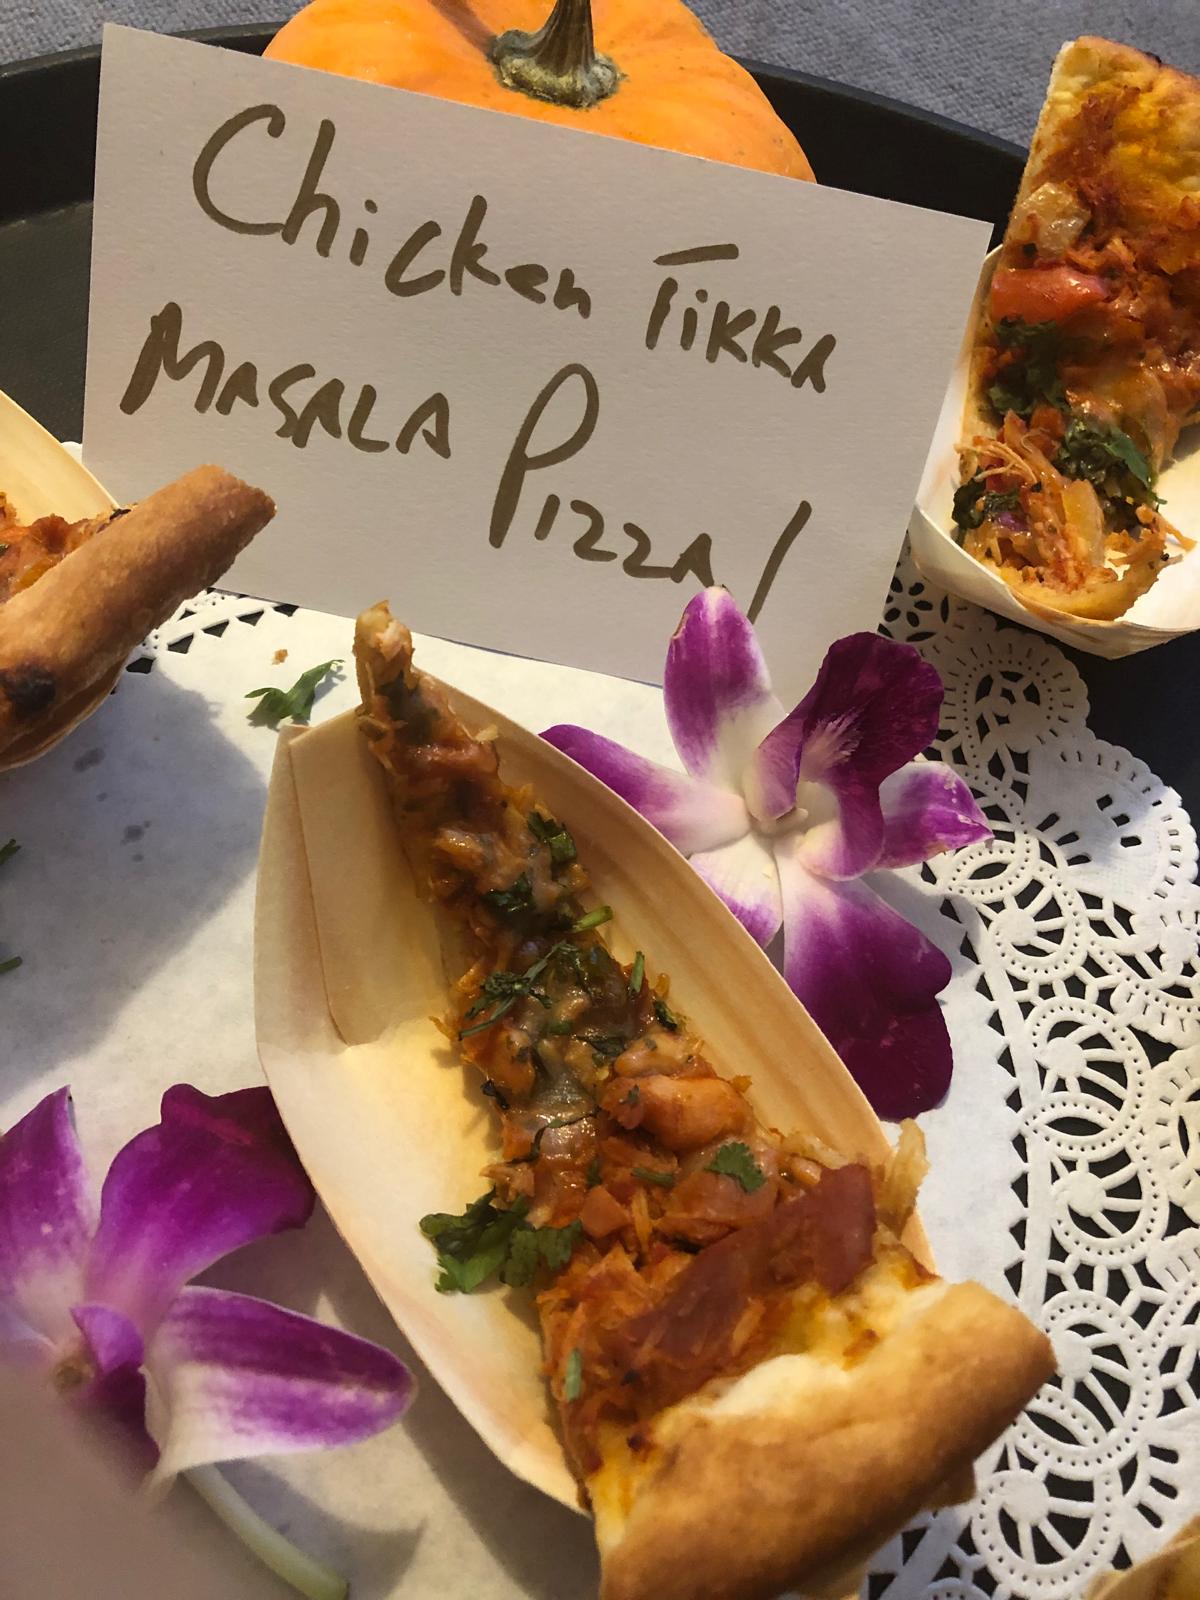 Chicken TiKKA
MASALA PIZZA!